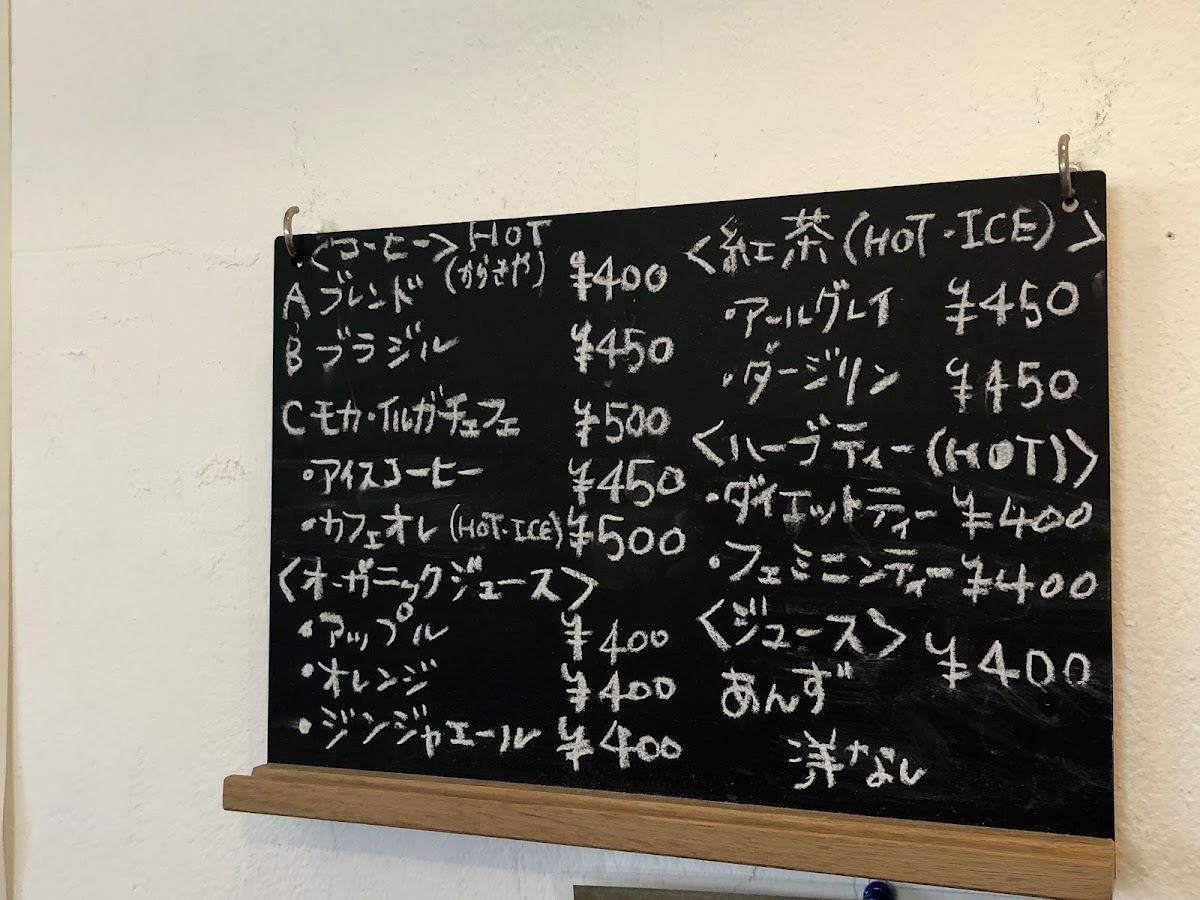 <コーヒー> HOT
(からさや)
A ブレンド ¥400
B ブラジル ¥450
C モカ・イルガチェフェ ¥500
・アイスコーヒー ¥450
・カフェオレ (HOT・ICE) ¥500
<オーガニックジュース>
・アップル ¥400
・オレンジ ¥400
・ジンジャエール ¥400
<紅茶 (HOT・ICE)>
・アールグレイ ¥450
・ダージリン ¥450
<ハーブティー (HOT)>
・ダイエットティー ¥400
・フェミニンティー ¥400
<ジュース> ¥400
あんず
洋なし